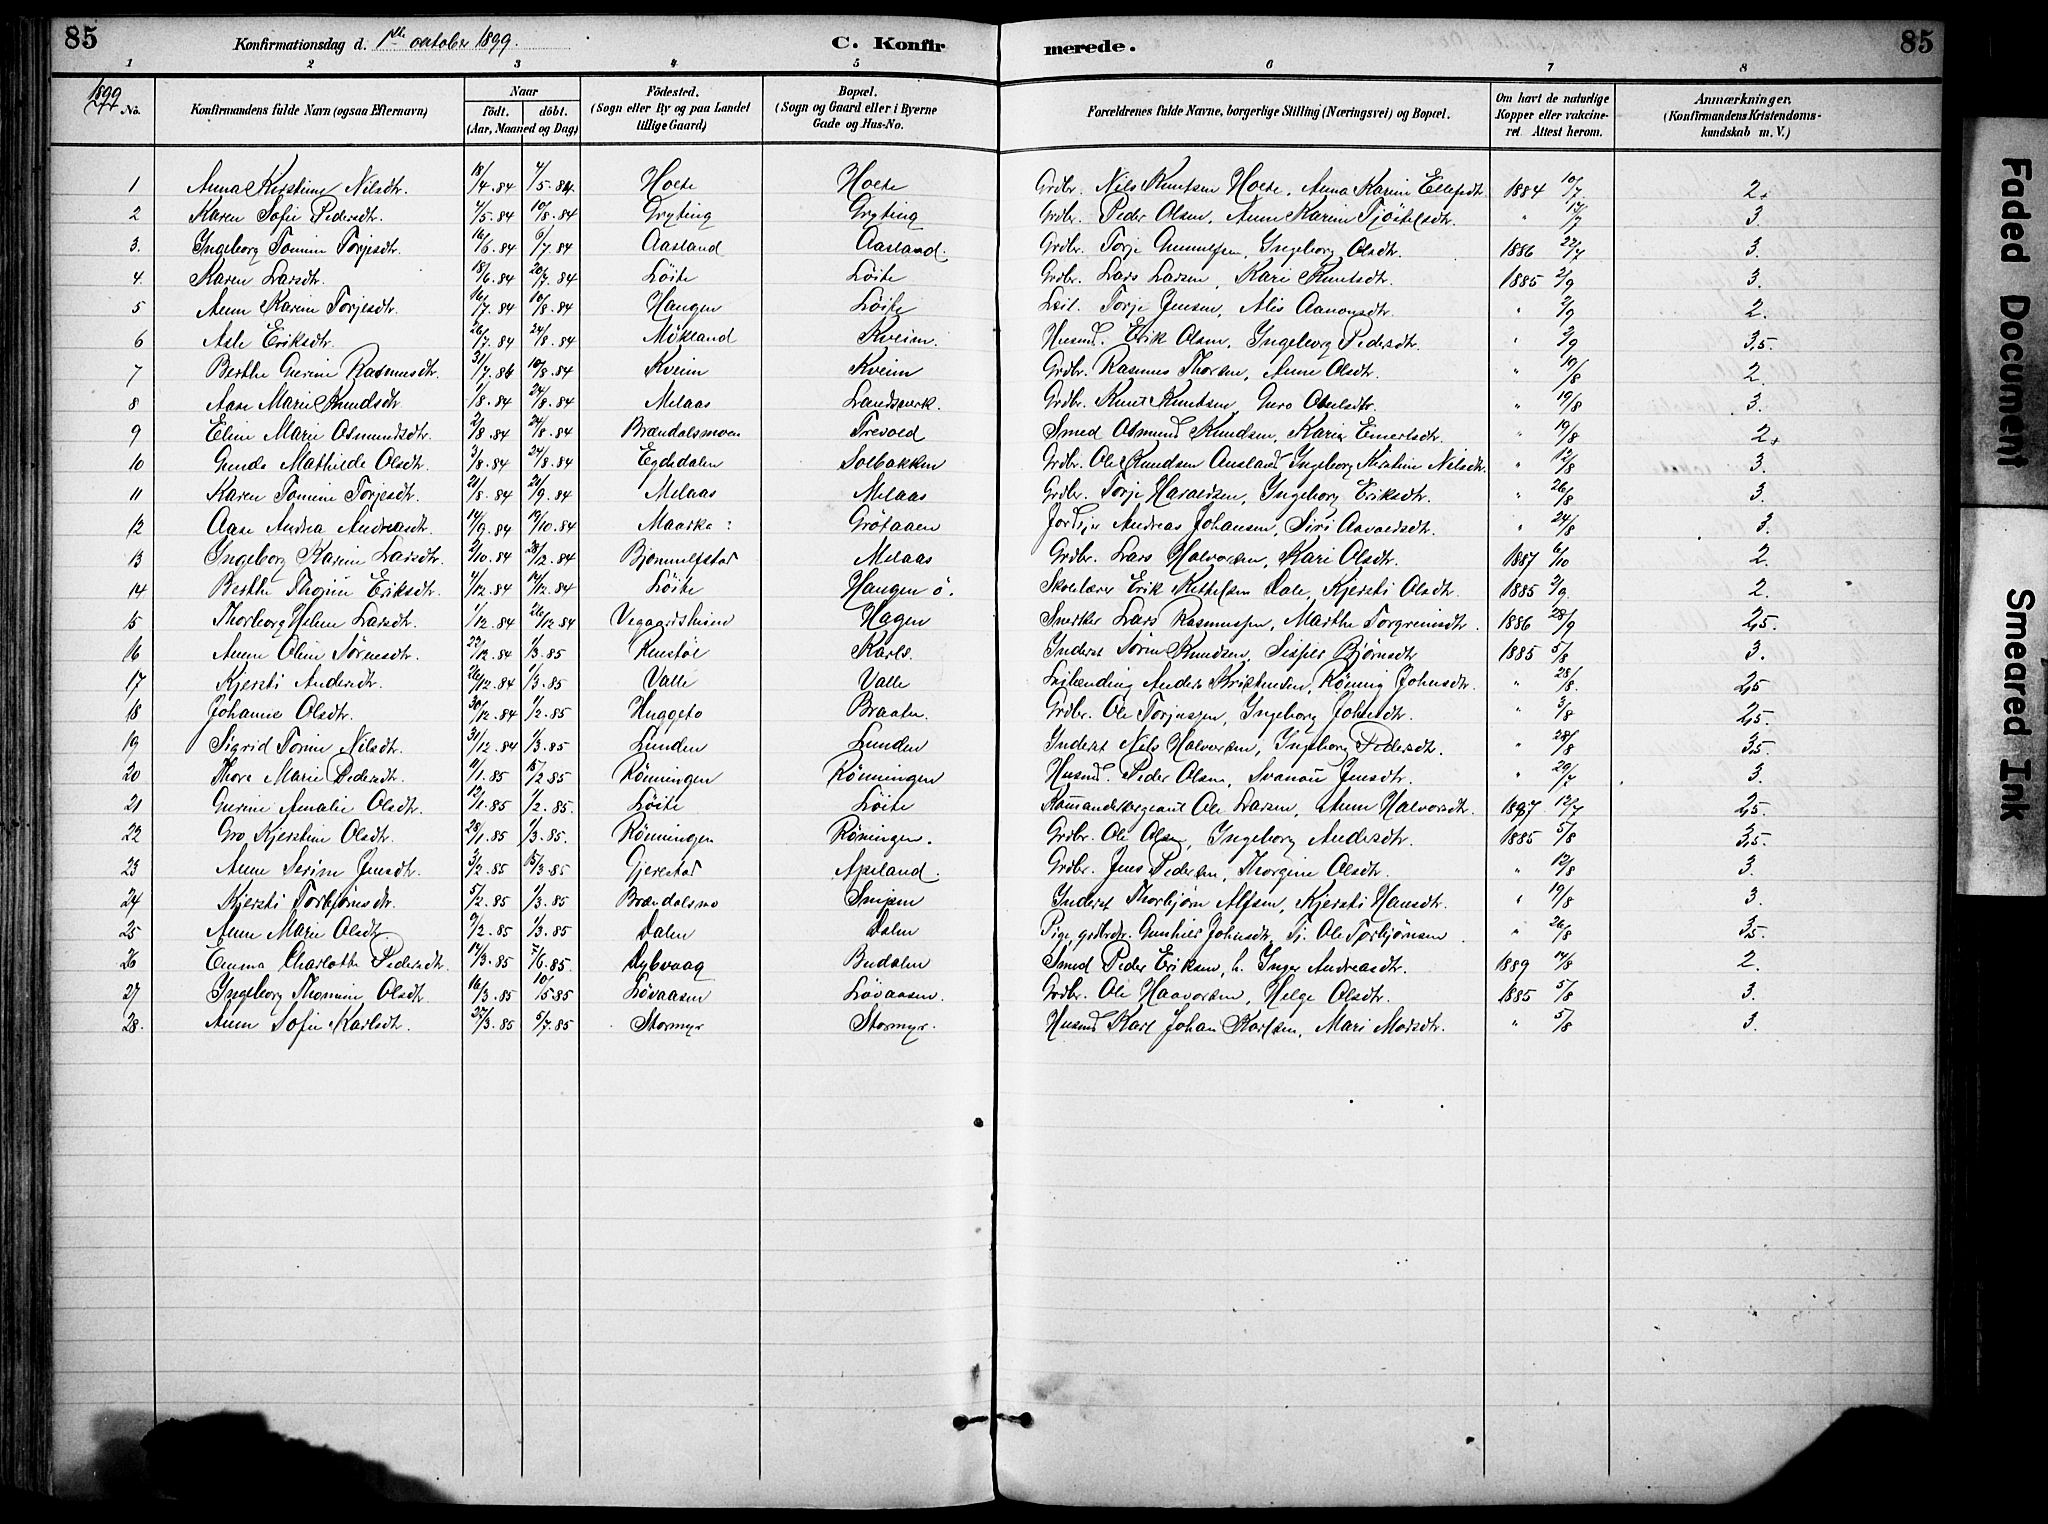 85 Konfirmationsdag d. 1ste october 1899. C. Konfirmerede. 85
1 2 3 4 5 6 7 8
1899 No. Konfirmandens fulde Navn (ogsaa Efternavn) Naar født. døbt. (Aar, Maaned og Dag) Fødested. (Sogn eller By og paa Landet tillige Gaard) Bopæl. (Sogn og Gaard eller i Byerne Gade og Hus-No. Forældrenes fulde Navne, borgerlige Stilling (Næringsvei) og Bopæl. Om havt de naturlige Kopper eller vakcineret. Attest herom. Anmærkninger. (Konfirmandens Kristendomskundskab m. V.)
1 Anna Kirstine Nilsdtr. 18/4.84 4/5.84 Holte Holte Grdbr. Nils Knutsen Holte, Anna Karine Ellefsdtr 1884 10/7 2+
2 Karen Sofie Pedersdtr. 4/5.84 10/8.84 Gryting Gryting Grdbr. Peder Olsen, Anne Karine Tjöstelsdtr. " 17/7 3
3. Ingeborg Tomine Torjesdtr. 16/6.84 6/7.84 Aasland Aasland. Grdbr. Torje Gunnulfsen, Ingeborg Olsdtr. 1886 22/7 3.
4. Karen Larsdtr. 18/6.84 20/7.84 Löite Löite Grdbr. Lars Larsen, Kari Knutsdtr. 1885 2/9 3.
5 Anne Karine Torjesdtr. 16/7.84 10/8.84 Haugen Löite Leil. Torje Jensen, Alis Aanonsdtr. " 2/9 2.
6 Asle Eriksdtr. 26/7.84 24/8.84 Mökland Kveim. Husmd. Erik Olsen, Ingeborg Pedersdtr. " 2/9 3,5.
7 Berthe Gurine Rasmusdtr. 31/7.84 10/8.84 Kveim Kveim Grdbr. Rasmus Thorsen, Anne Olsdtr. " 19/8 2.
8 Aase Marie Knudsdtr 1/8.84 24/8.84 Melaas Landsverk. Grdbr. Knut Knutsen, Guro Olsdtr. " 19/8 3.
9 Eline Marie Osmundsdtr. 2/8.84 24/8.84 Brændalsmoen Trevold Smed Osmund Knudsen, Karie Einertsdtr. " 19/8 2+
10 Gunda Mathilde Olsdtr. 3/8.84 24/8.84 Egdedalen Solbakken Grdbr. Ole Knudsen Ausland, Ingeborg Kirstine Nilsdtr. " 12/8 3.
11 Karen Tomine Torjesdtr. 21/8.84 21/9.84 Melaas Melaas Grdbr. Torje Haraldsen, Ingeborg Eriksdtr. " 26/8 3.
12 Aase Andrea Andreasdtr. 14/9.84 19/10.84 Maarka: Grötaaen Andreas Johansen, Siri Aavoldsdtr. " 24/8 3.
13 Ingeborg Karine Larsdtr. 2/10.84 28/12.84 Bjønnulfstad Melaas Grdbr. Lars Halvorsen, Kari Olsdtr. 1887 6/10 2.
14 Berthe Thomine Eriksdtr. 4/12.84 14/12.84 Löite Haugen ö. Skolelærer Erik Kittelsen Dale, Kjersti Olsdtr. 1885 2/9. 2.
15 Thorborg Helene Larsdtr. 1/12.84 26/12.84 Vegaardsheien Hagen Snerker Lars Rasmussen, Marthe Torgrimsdtr. 1886 28/9 2,5.
16 Anne Oline Sörensdtr. 22/12.84 1/3.85 Renstöl Karls. Inderst Sören Knudsen, Sispei Bjørnsdtr 1885 5/8 3.
17 Kjersti Andersdtr. 26/12.84 1/3.85 Valle Valle Leilænding Anders Kristensen, Rönnug Johnsdtr. " 28/8. 2,5
18 Johanne Olsdtr. 30/12.84 1/2.85 Huggeto Braaten. Grdbr. Ole Torjussen, Ingeborg Johnsdtr. " 3/8 2,5.
19 Sigrid Tomine Nilsdtr. 31/12.84 1/3.85 Lunden Lunden Inderst Nils Halvorsen, Ingeborg Pedersdtr. " 28/8 3,5.
20 Thora Marie Pedersdtr. 11/1.85 15/2.85 Rönningen Rönningen Husmd. Peder Olsen, Svanau Jensdtr. " 29/7 3.
21 Gurine Amalie Olsdtr. 12/1.85 1/2.85. Löite Löite Kommandersergeant Ole Larsen, Anne Halvorsdtr. 1897 12/7 2,5.
22 Gro Kjerstine Olsdtr. 28/1.85 1/3.85. Rönningen Röningen. Grdbr. Ole Olsen, Ingeborg Andersdtr. 1885 5/8 3,5.
23 Anne Serine Jensdtr. 3/2.85 15/3.85 Gjerestad Apeland. Grdbr. Jens Pedersen, Thorgine Olsdtr. " 12/8 3.
24 Kjersti Torbjørnsdtr. 5/2.85 1/3.85 Brændalsmo Snipen Inderst Thorbjørn Alfsen, Kjersti Hansdtr. " 19/8 3.
25 Anne Marie Olsdtr. 9/2.85 1/3.85 Dalen Dalen Pige, grdbrdtr. Gunhild Johnsdtr, Tj. Ole Torbjørnsen. " 26/8 3,5.
26 Emma Charlotte Pedersdtr. 14/3.85 7/6.85. Dybvaag Budalen Smed Peder Eriksen, h. Inger Andreasdtr. 1889 14/8 2.
27 Ingeborg Thomine Olsdtr 16/3.85 10/5.85 Lövaasen Lövaasen. Grdbr. Ole Haavorsen, Helge Olsdtr. 1885 5/8 3.
28. Anne Sofie Karlsdtr. 27/3.85 5/7.85 Stormyr Stormyr. Husmd Karl Johan Karlsen, Mari Moisdtr. " 5/8 3.
Faded Document
Smeared Ink